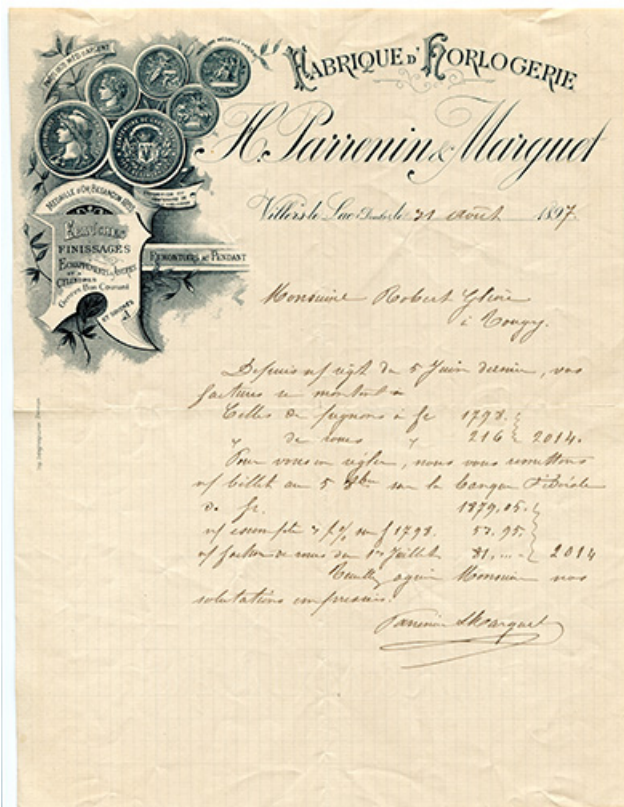 FABRIQUE D'HORLOGERIE
H. Parrenin & Marguet
Villers le Lac (Doubs) le 31 août 1897.
MÉDAILLE D'OR, BESANÇON 1893
ÉBAUCHES
FINISSAGES
ÉCHAPPEMENTS À ANCRES
ET À
CYLINDRES
Genres Bon Courant
ET SOIGNÉS
REMONTOIRS AU PENDANT
Monsieur Robert
à
Depuis n/ regt du 5 Juin dernier, vos
factures se montent à
Celles de pignons à fr 1798.
" de roues " 216 2014.
Pour vous en régler, nous vous remettons
n/ billet au 5 8bre sur la banque Fédérale
de fr. 1879.05.
n/ escompte 3 % sur f 1798. 53.95.
n/ facture de du 1er Juillet 81,... 2014
Veuillez agréer Monsieur nos
salutations empressées.
Parrenin & Marguet